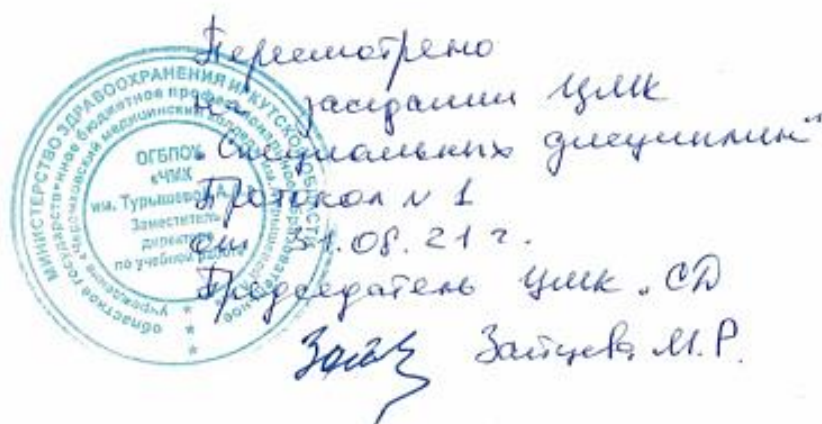 Пересмотрено
на заседании ЦМК
„Специальных дисциплин“
Протокол N 1
от 31.08.21 г.
Председатель ЦМК „СД
Зайцева М.Р.
МИНИСТЕРСТВО ЗДРАВООХРАНЕНИЯ ИРКУТСКОЙ ОБЛАСТИ
областное государственное бюджетное профессиональное образовательное учреждение
«Черемховский медицинский колледж им. Турышевой А.А.»
ОГБПОУ
«ЧМК
им. Турышевой А.А.»
Заместитель
директора
по учебной работе